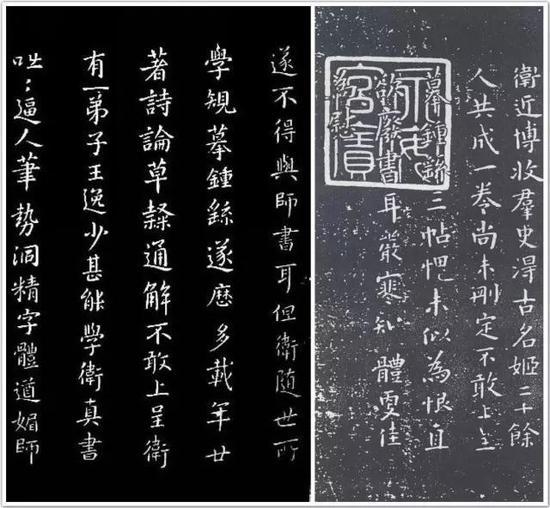 衛近博收羣史得古名姬二十餘
人共成一卷尚未刪定不敢上呈
摹鍾繇三帖悒未似為恨直
廢書耳嚴寒知體更佳
遂不得與師書耳但衛隨世所
學規摹鍾繇遂歷多載年廿
著詩論草隸通解不敢上呈衛
有一弟子王逸少甚能學衛真書
咄〻逼人筆勢洞精字體遒媚師